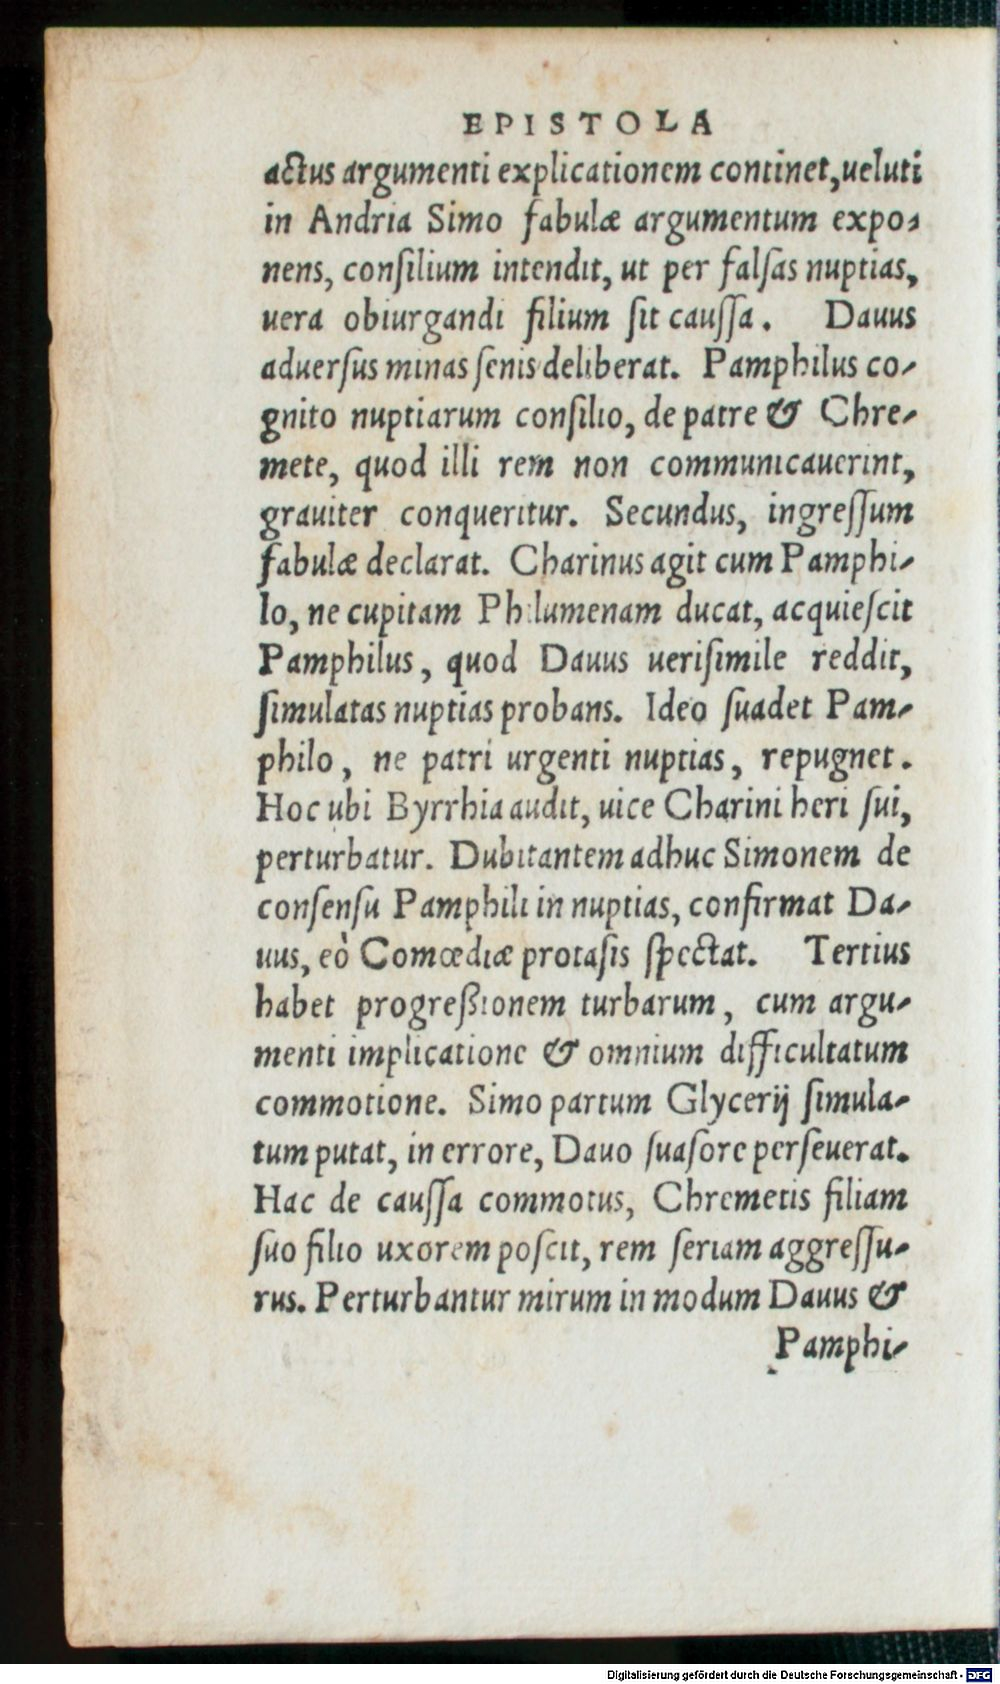 EPISTOLA
actus argumenti explicationem continet, ueluti
in Andria Simo fabulæ argumentum expo-
nens, consilium intendit, ut per falsas nuptias,
uera obiurgandi filium sit caussa. Dauus
aduersus minas senis deliberat. Pamphilus co-
gnito nuptiarum consilio, de patre & Chre-
mete, quod illi rem non communicauerint,
grauiter conqueritur. Secundus, ingressum
fabulæ declarat. Charinus agit cum Pamphi-
lo, ne cupitam Philumenam ducat, acquiescit
Pamphilus, quod Dauus uerisimile reddit,
simulatas nuptias probans. Ideo suadet Pam-
philo, ne patri urgenti nuptias, repugnet.
Hoc ubi Byrrhia audit, uice Charini heri sui,
perturbatur. Dubitantem adhuc Simonem de
consensu Pamphili in nuptias, confirmat Da-
uus, eò Comœdiæ protasis spectat. Tertius
habet progreßionem turbarum, cum argu-
menti implicatione & omnium difficultatum
commotione. Simo partum Glycerij simula-
tum putat, in errore, Dauo suasore perseuerat.
Hac de caussa commotus, Chremetis filiam
suo filio uxorem poscit, rem seriam aggressu-
rus. Perturbantur mirum in modum Dauus &
Pamphi-
Digitalisierung gefördert durch die Deutsche Forschungsgemeinschaft - DFG